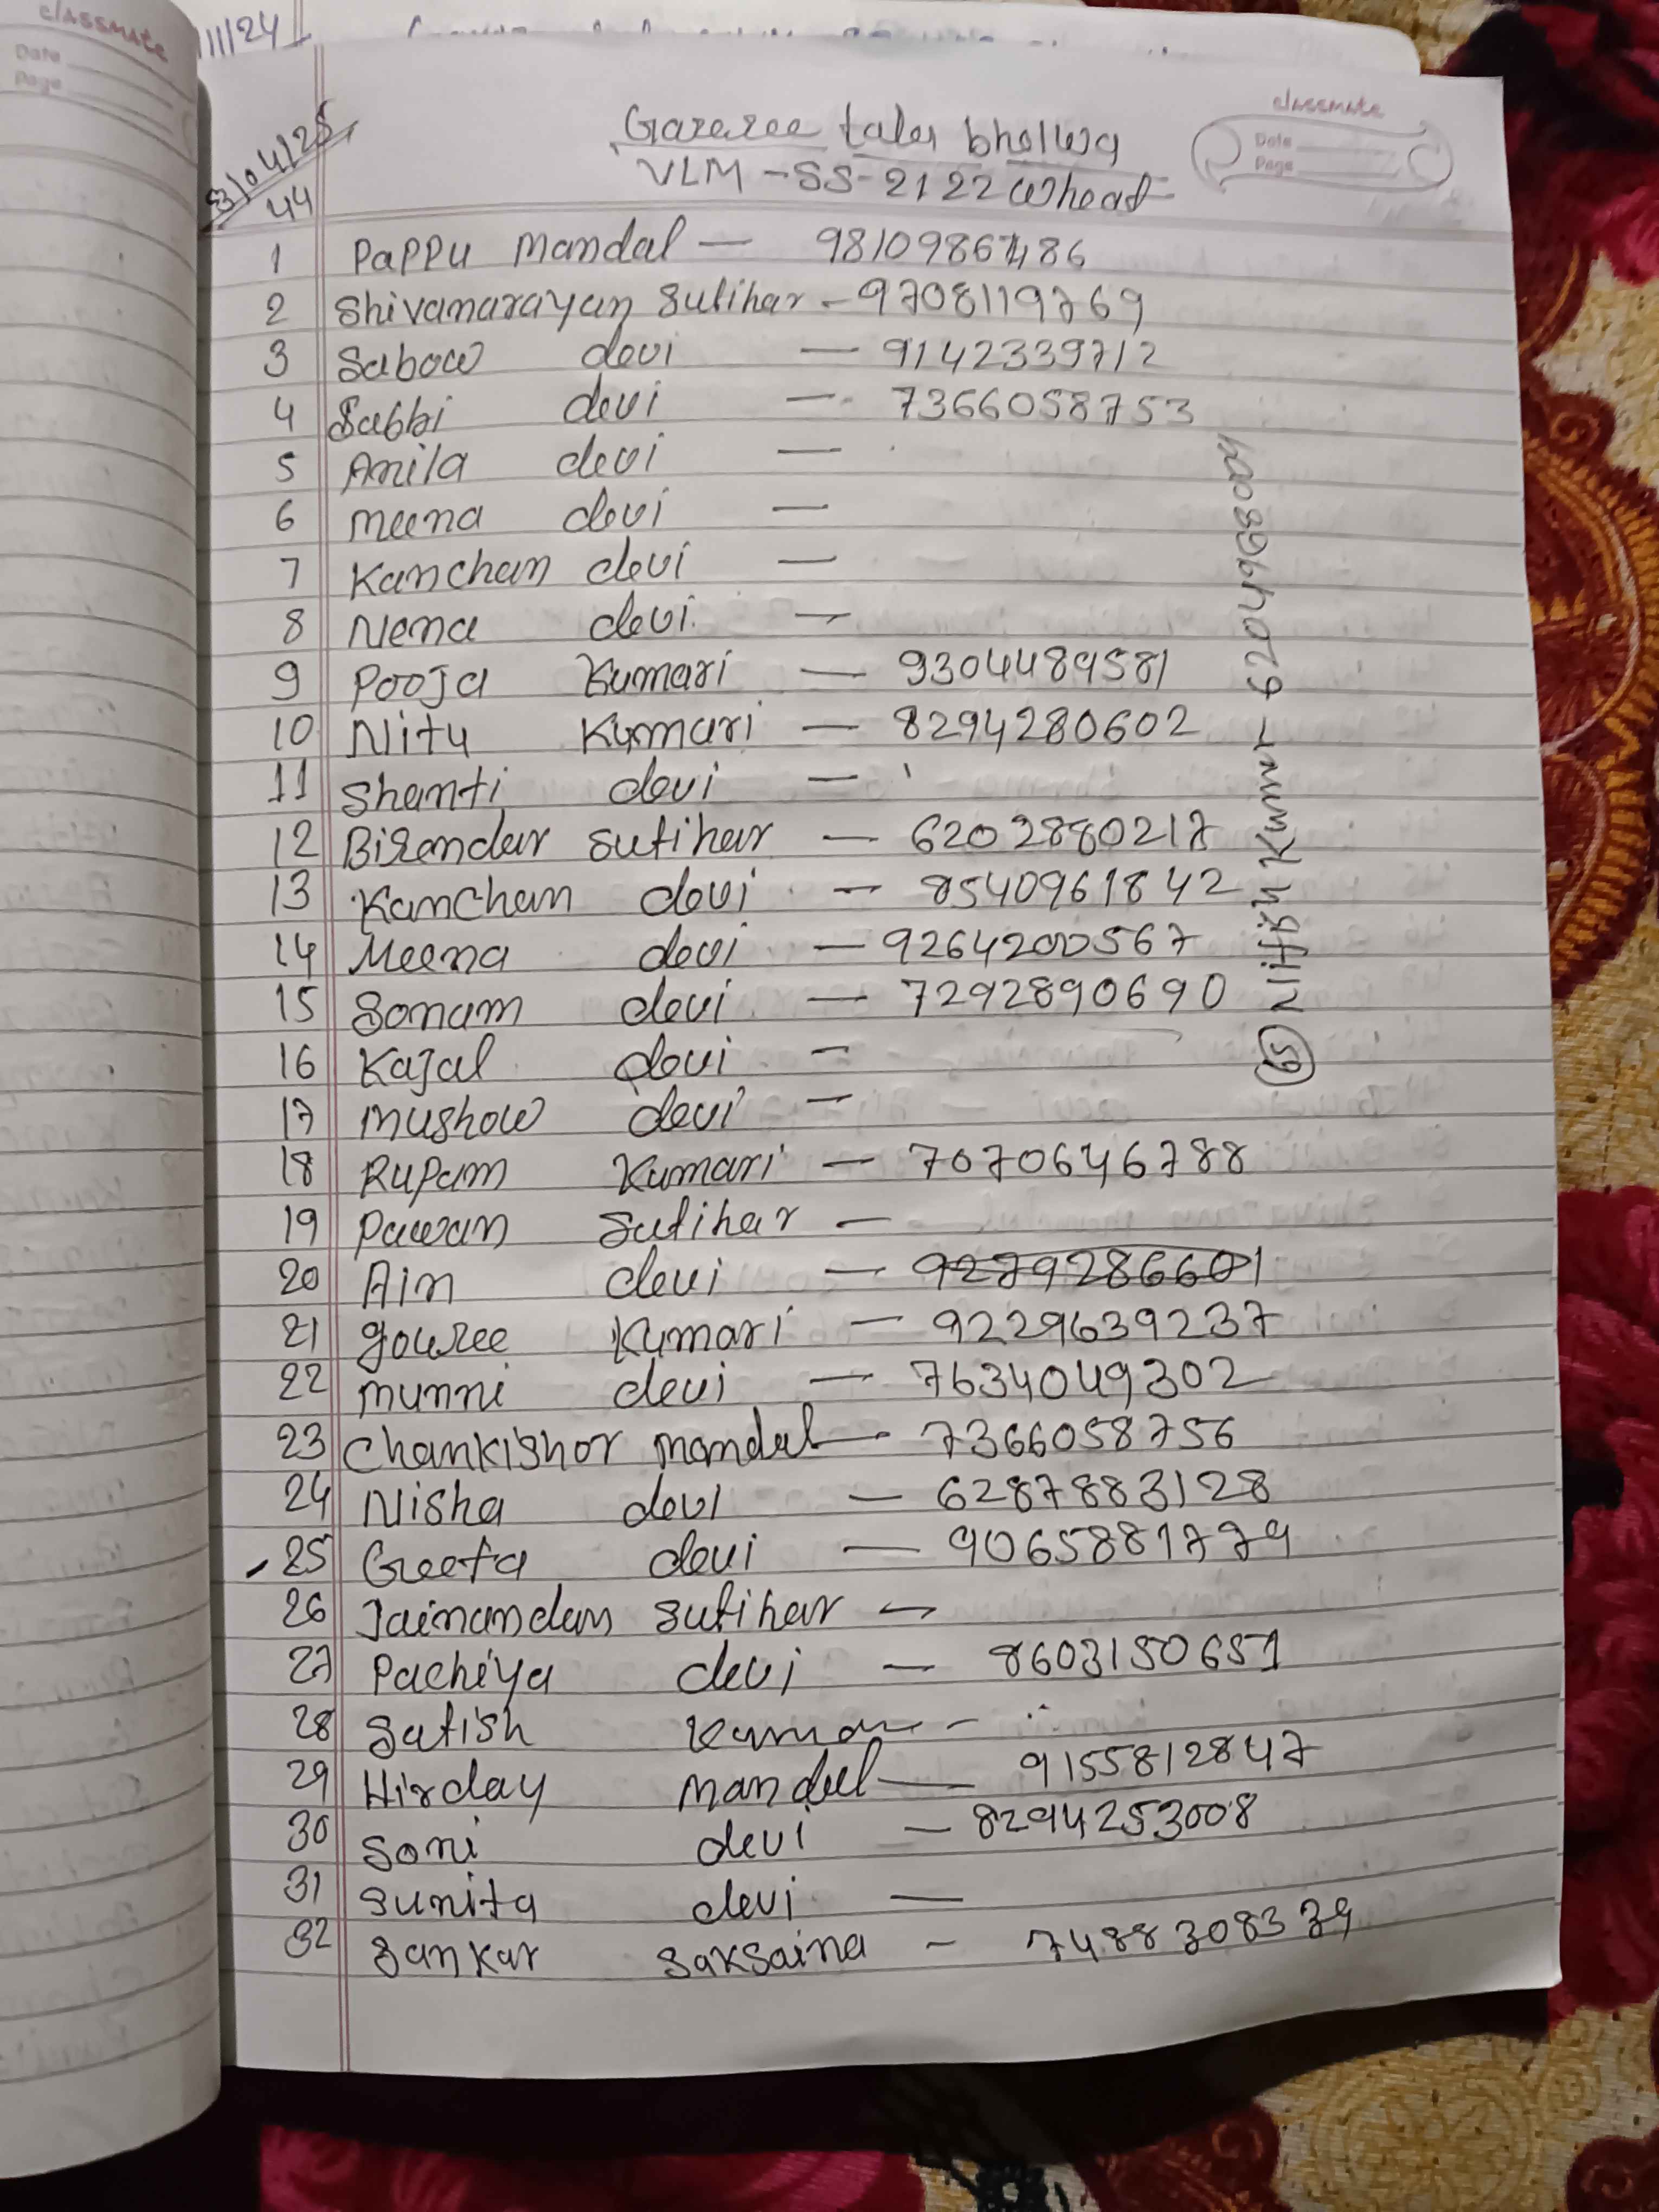 classmate
Date
Page
11/24
classmate
Date
Page
3/04/25
44
Gareree taler bhelwa
VLM - SS - 2122 Wheat
1 Pappu Mandal — 98109867486
2 Shivanarayan Sutihar - 9708119769
3 Sabow devi — 9142339712
4 Sabbi devi — 7366058753
5 Anila devi —
6 Meena devi —
7 Kanchan devi —
8 Nena devi —
9 Pooja Kumari — 9304489581
10 Nitu Kumari — 8294280602
11 Shanti devi —
12 Birendar Sutihar — 6202880217
13 Kanchan devi — 8540961842
14 Meena devi — 9264200567
15 Sonam devi — 7292890690
16 Kajal devi —
17 Mushow devi —
18 Rupam Kumari — 7070646788
19 Pawan Sutihar —
20 Ain devi — 9279286601
21 Gouree Kumari — 9229639237
22 Munni devi — 7634049302
23 Chankishor Mandal — 7366058756
24 Nisha devi — 6287883128
25 Geeta devi — 9065881779
26 Jainandan Sutihar —
27 Pachiya devi — 8603150651
28 Satish Kumar -
29 Hirday Mandal — 9155812847
30 Soni devi — 8294253008
31 Sunita devi —
32 Sankar Saksaina - 7488308379
65 Nitish Kumar -